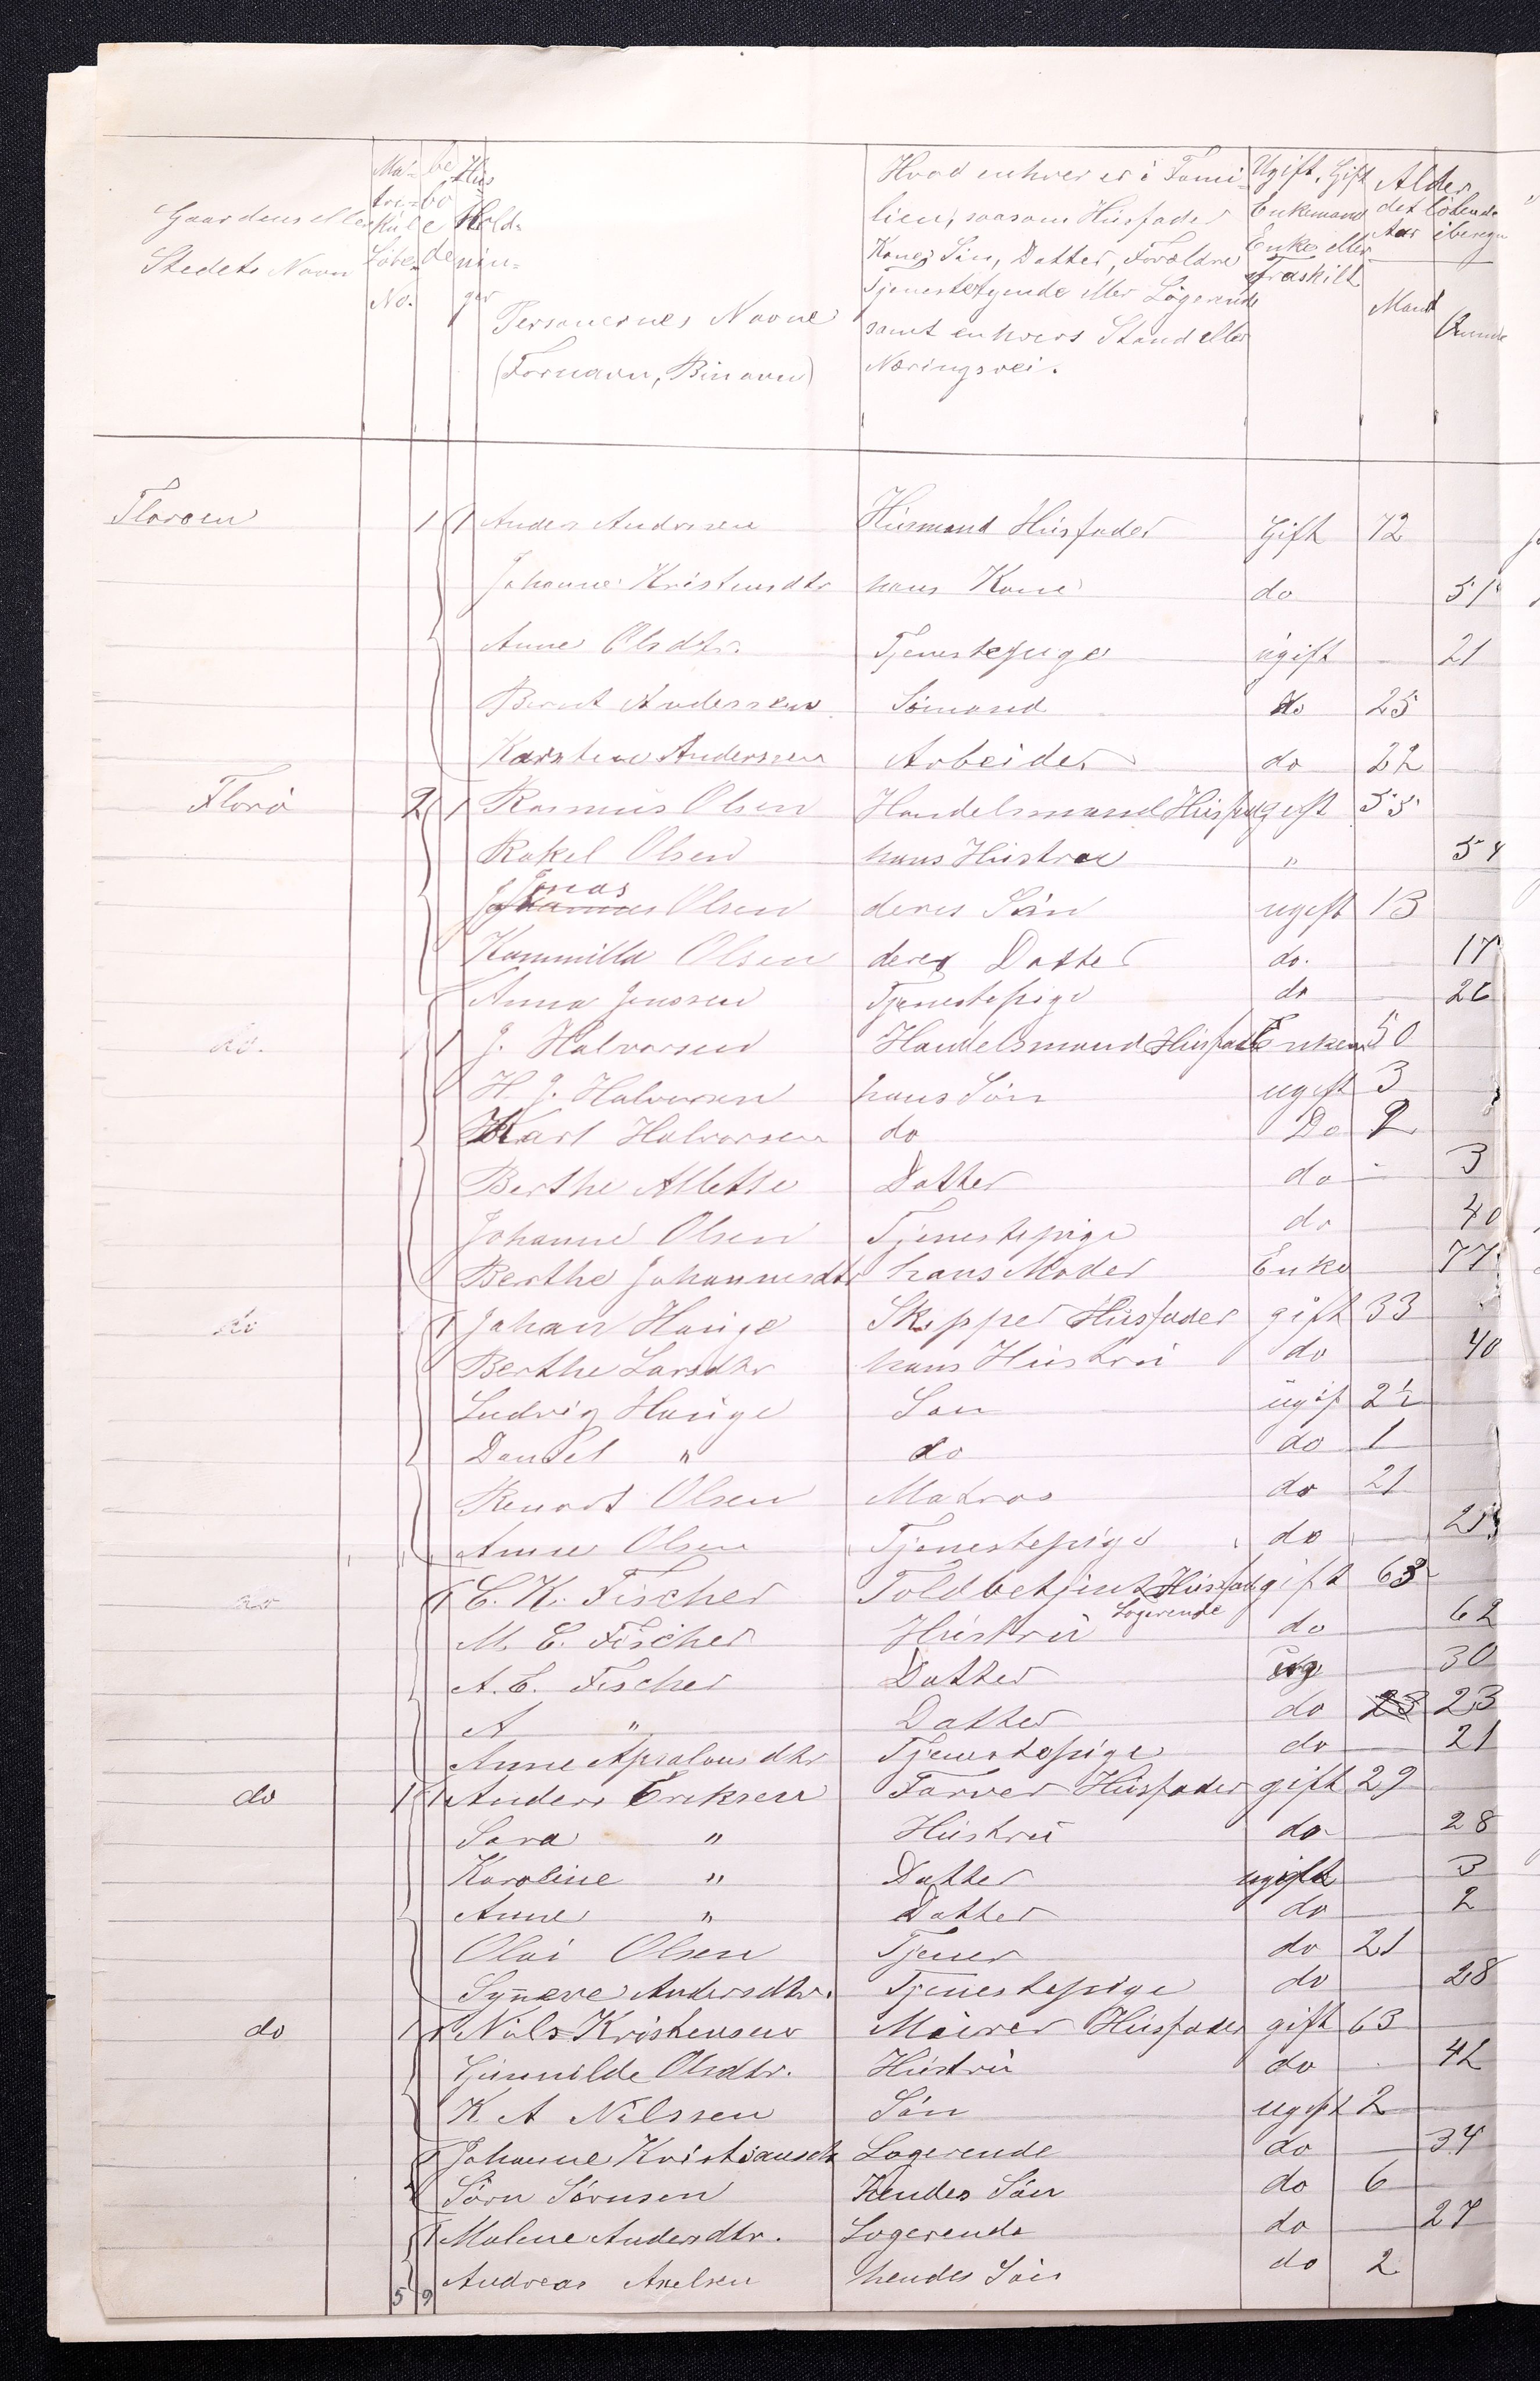 Gaardens eller
Stedets Navn
Ma-
tri-
kule
Löbe
No.
be
bo
e
de
Hus
Hold-
nin-
ger
Personernes Navne
(Fornavn, Binavn)
Hvad enhver er i Fami-
lien, saasom Husfader
Kone, Sön, Datter, Forældre
Tjenestetyende eller Logerende
samt enhvers Stand eller
Næringsvei.
Ugift, Gift
Enkemand
Enke eller
Fraskilt
Alder
det löbende
Aar iberegn
Mand
Qvinde
Floroen 1 1 Anders Andersen Husmand Husfader Gift 72
Johanne Kristensdtr hans Kone do 51
Anne Olsdtr. Tjenestepige ugift 21
Bernt Anderssen Sömand do 25
Karsten Anderssen Arbeider do 22
Florö 2 1 Rasmus Olsen Handelsmand Husfad gift 55
Rakel Olsen hans Hustru " 54
Jonas
Johannes Olsen deres Sön ugift 13
Kammilla Olsen deres Datter do. 17
Anna Jensen Tjenestepige do 26
do. 1 1 J. Halvorsen Handelsmand Husfad Enkem 50
H. J. Halvorsen hans Sön ugift 3
Karl Halvorsen do Do 2
Berthe Alette Datter do - 3
Johanne Olsen Tjenestepige do 40
Berthe Johannesdtr hans Moder Enke 77
do 1 1 Johan Hauge Skipper Husfader gift 33
Berthe Larsdtr hans Hustru do 40
Ludvig Hauge Son ugif 2½
Daniel " do do 1
Renert Olsen Matros do 21
Anne Olsen Tjenestepige do 25
do 1 C. K. Fischer Toldbetjent Husfad gift 63
Logerende
M. C. Fischer Hustru do 62
A. C. Fischer Datter ug 30
A " Datter do 23 23
Anne Apsalons dtr Tjenestepige do 21
do 1 1 Anders Eriksen Farver Husfader gift 29
Sara " Hustru do 28
Karoline " Datter ugift 3
Anne " Datter do 2
Olai Olsen Tjener do 21
Synneve Andersdtr. Tjenestepige do 28
do 1 1 Nils Kristensen Murer Husfader gift 63
Gunnilde Olsdtr. Hustru do 42
K A Nilssen Sön ugift 2
1 Johanne Kristiansdtr Logerende do 34
Sörn Sörnsen Hendes Sön do 6
1 Malene Andersdtr. Logerende do 27
Andreas Axelsen hendes Sön do 2
5 9